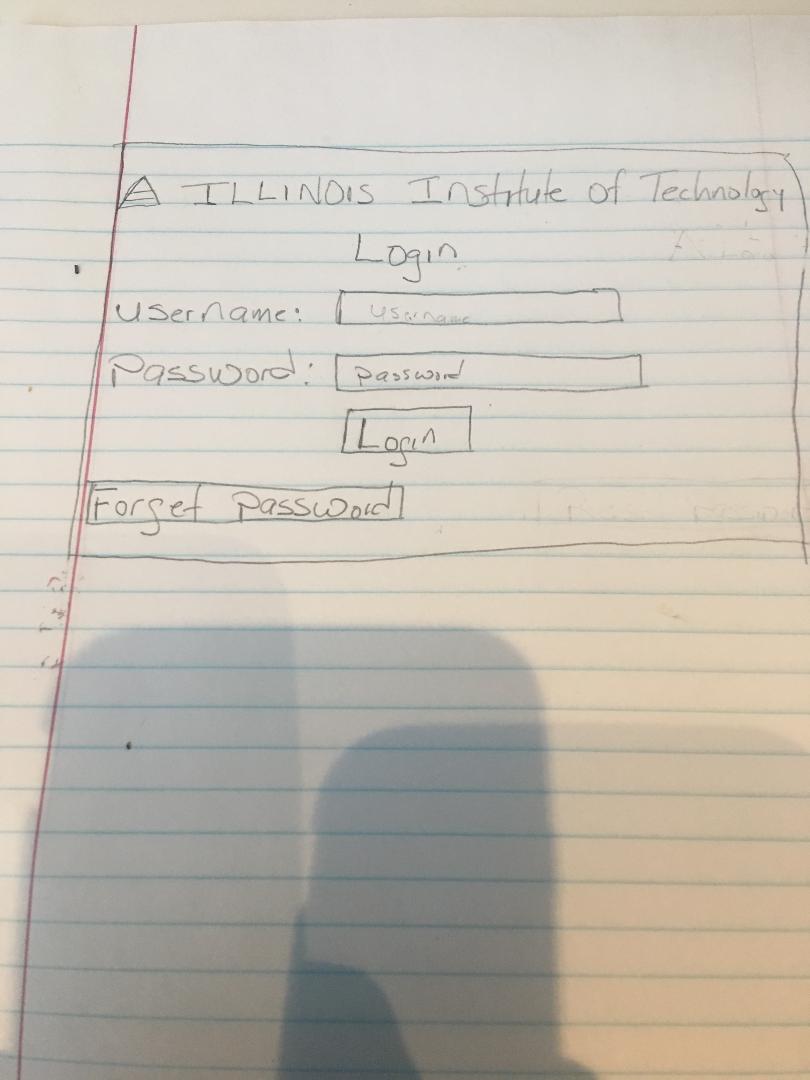 ILLINOIS Institute of Technology
Login
Username: Username
Password: Password
Login
Forget Password